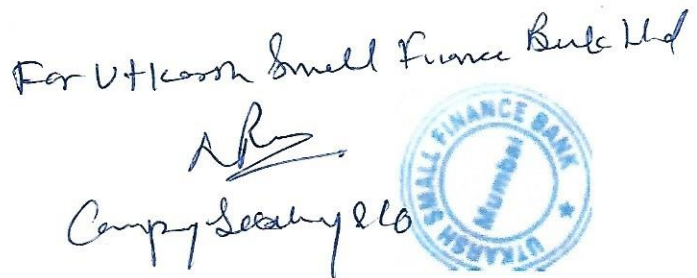 For Utkarsh Small Finance Bank Ltd
Company Secretary & CO
UTKARSH SMALL FINANCE BANK
Mumbai